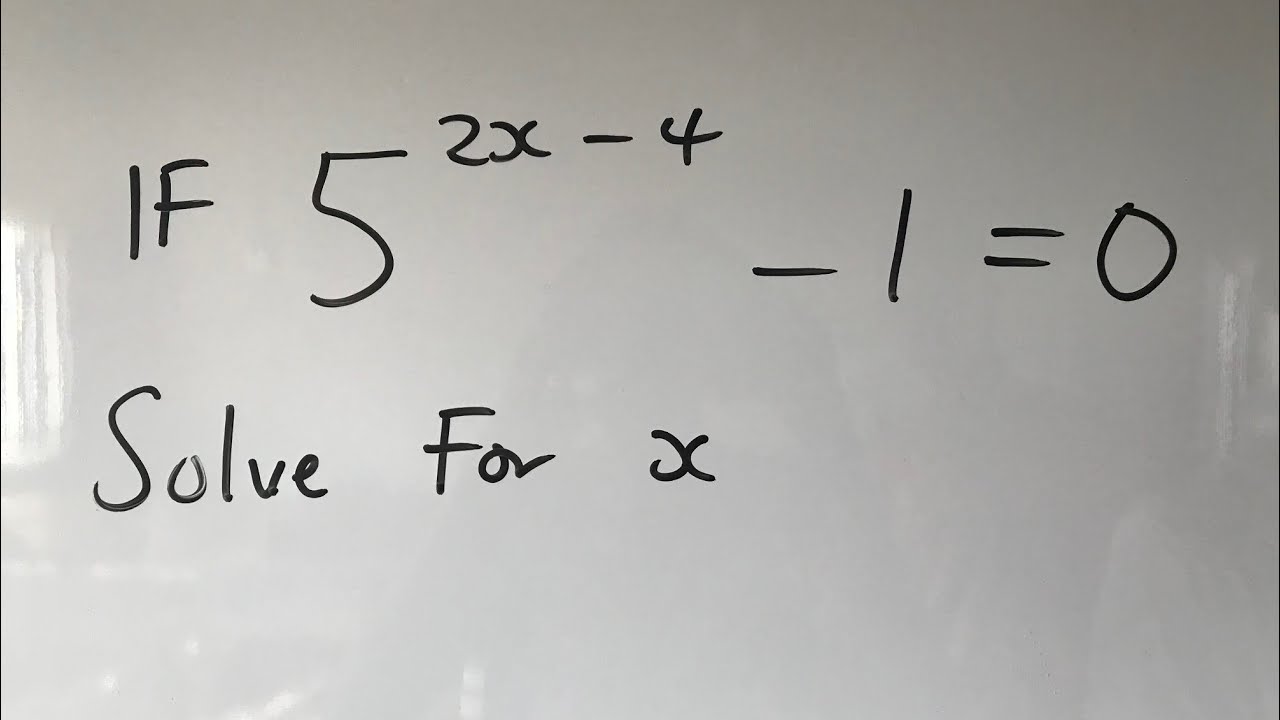 IF 5^{2x-4} - 1 = 0
Solve For x